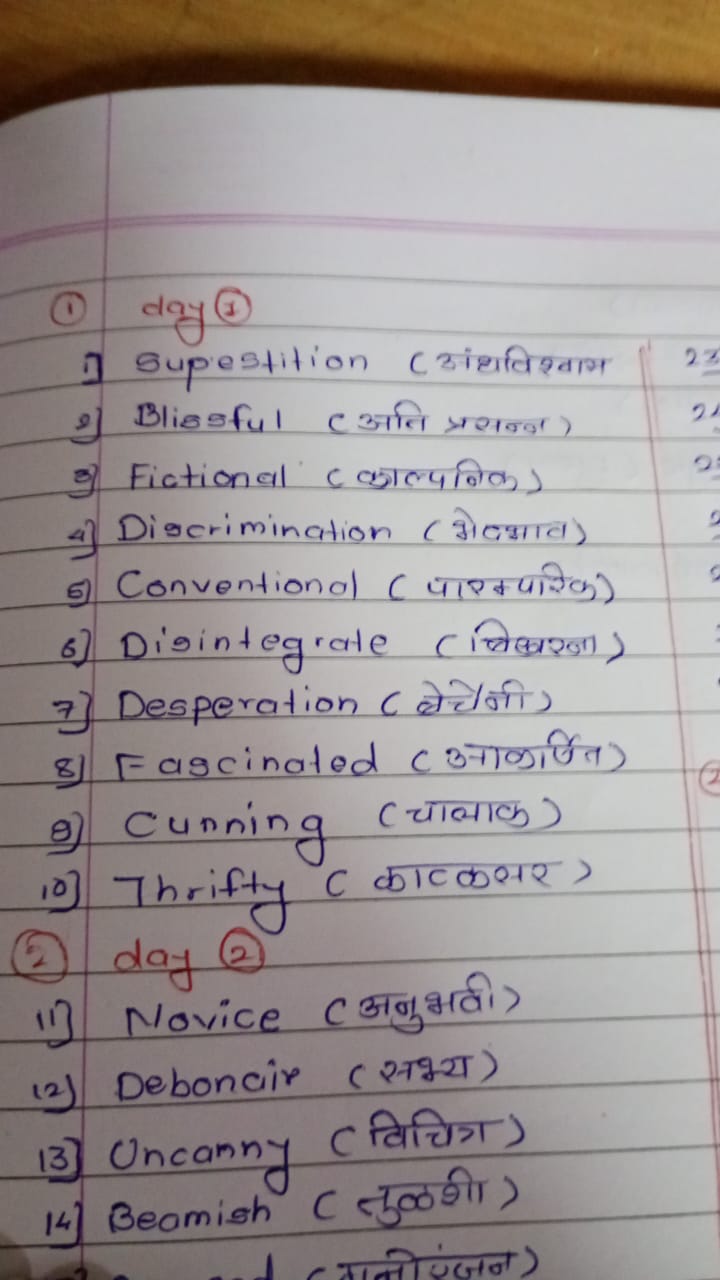 ① day ①
1] Supestition (अंधविश्वास
2] Blissful (अति प्रसन्न)
3] Fictional (काल्पनिक)
4] Discrimination (भेदभाव)
5] Conventional (पारम्पारिक)
6] Disintegrate (बिखरना)
7] Desperation (बेचेनी)
8] Fascinated (आकर्षित)
9] Cunning (चालाक)
10] Thrifty (काटकसर)
② day ②
11] Novice (अनुभवी)
12] Debonair (सभ्य)
13] Uncanny (विचित्र)
14] Beamish (तुळशी)
(मनोरंजन)
23